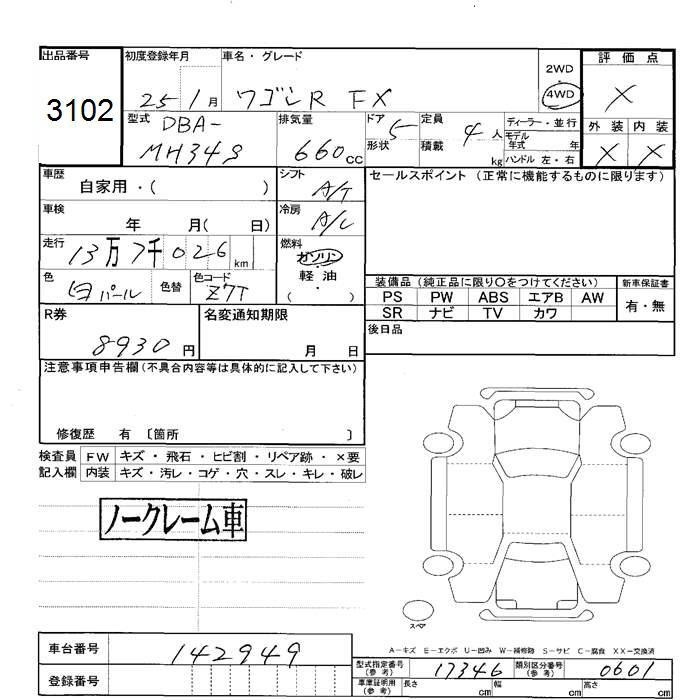 出品番号 初度登録年月 車名・グレード 評価点
3102 25 1月 ワゴンR FX 2WD 4WD X
型式 DBA-MH34S 排気量 660cc ドア形状 5 定員積載 4人 kg ディーラー・並行 モデル年式 年 ハンドル 左・右 外装 内装
X X
車歴 自家用・( ) シフト A/T セールスポイント (正常に機能するものに限ります)
車検 年 月( 日) 冷房 A/C
走行 13万7千026km 燃料 ガソリン 軽油 ・ ( )
色 白パール 色替 色コード Z7T 装備品 (純正品に限り○をつけてください) 新車保証書
PS PW ABS エアB AW 有・無
SR ナビ TV カワ
R券 8930円 名変通知期限 月 日 後日品
注意事項申告欄(不具合内容等は具体的に記入して下さい)
修復歴 有 〔箇所 〕
検査員 FW キズ・飛石・ヒビ割・リペア跡・×要
記入欄 内装 キズ・汚レ・コゲ・穴・スレ・キレ・破レ
ノークレーム車
スペア
A-キズ E-エクボ U-凹み W-補修跡 S-サビ C-腐食 XX-交換済
車台番号 142949 型式指定番号(参考) 17346 類別区分番号(参考) 0601
登録番号 車庫証明用(参考) 長さ cm 幅 cm 高さ cm